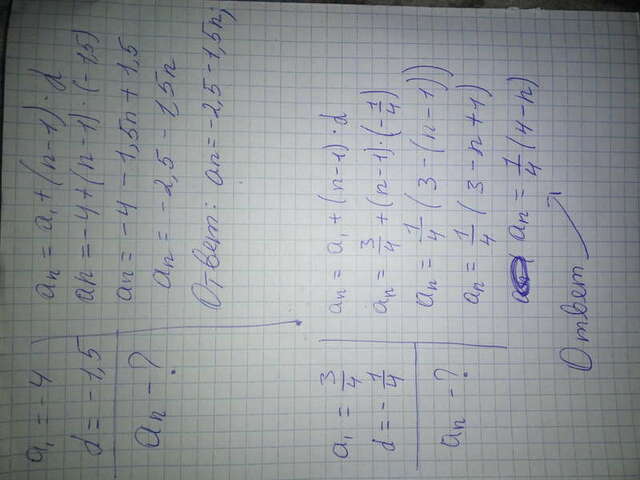 a₁ = -4
d = -1,5
aₙ - ?
aₙ = a₁ + (n-1) · d
aₙ = -4 + (n-1) · (-1,5)
aₙ = -4 - 1,5n + 1,5
aₙ = -2,5 - 1,5n
Ответ: aₙ = -2,5 - 1,5n;
a₁ = 3/4
d = - 1/4
aₙ - ?
aₙ = a₁ + (n-1) · d
aₙ = 3/4 + (n-1) · (- 1/4)
aₙ = 1/4 (3 - (n-1))
aₙ = 1/4 (3 - n + 1)
aₙ = 1/4 (4 - n)
Ответ